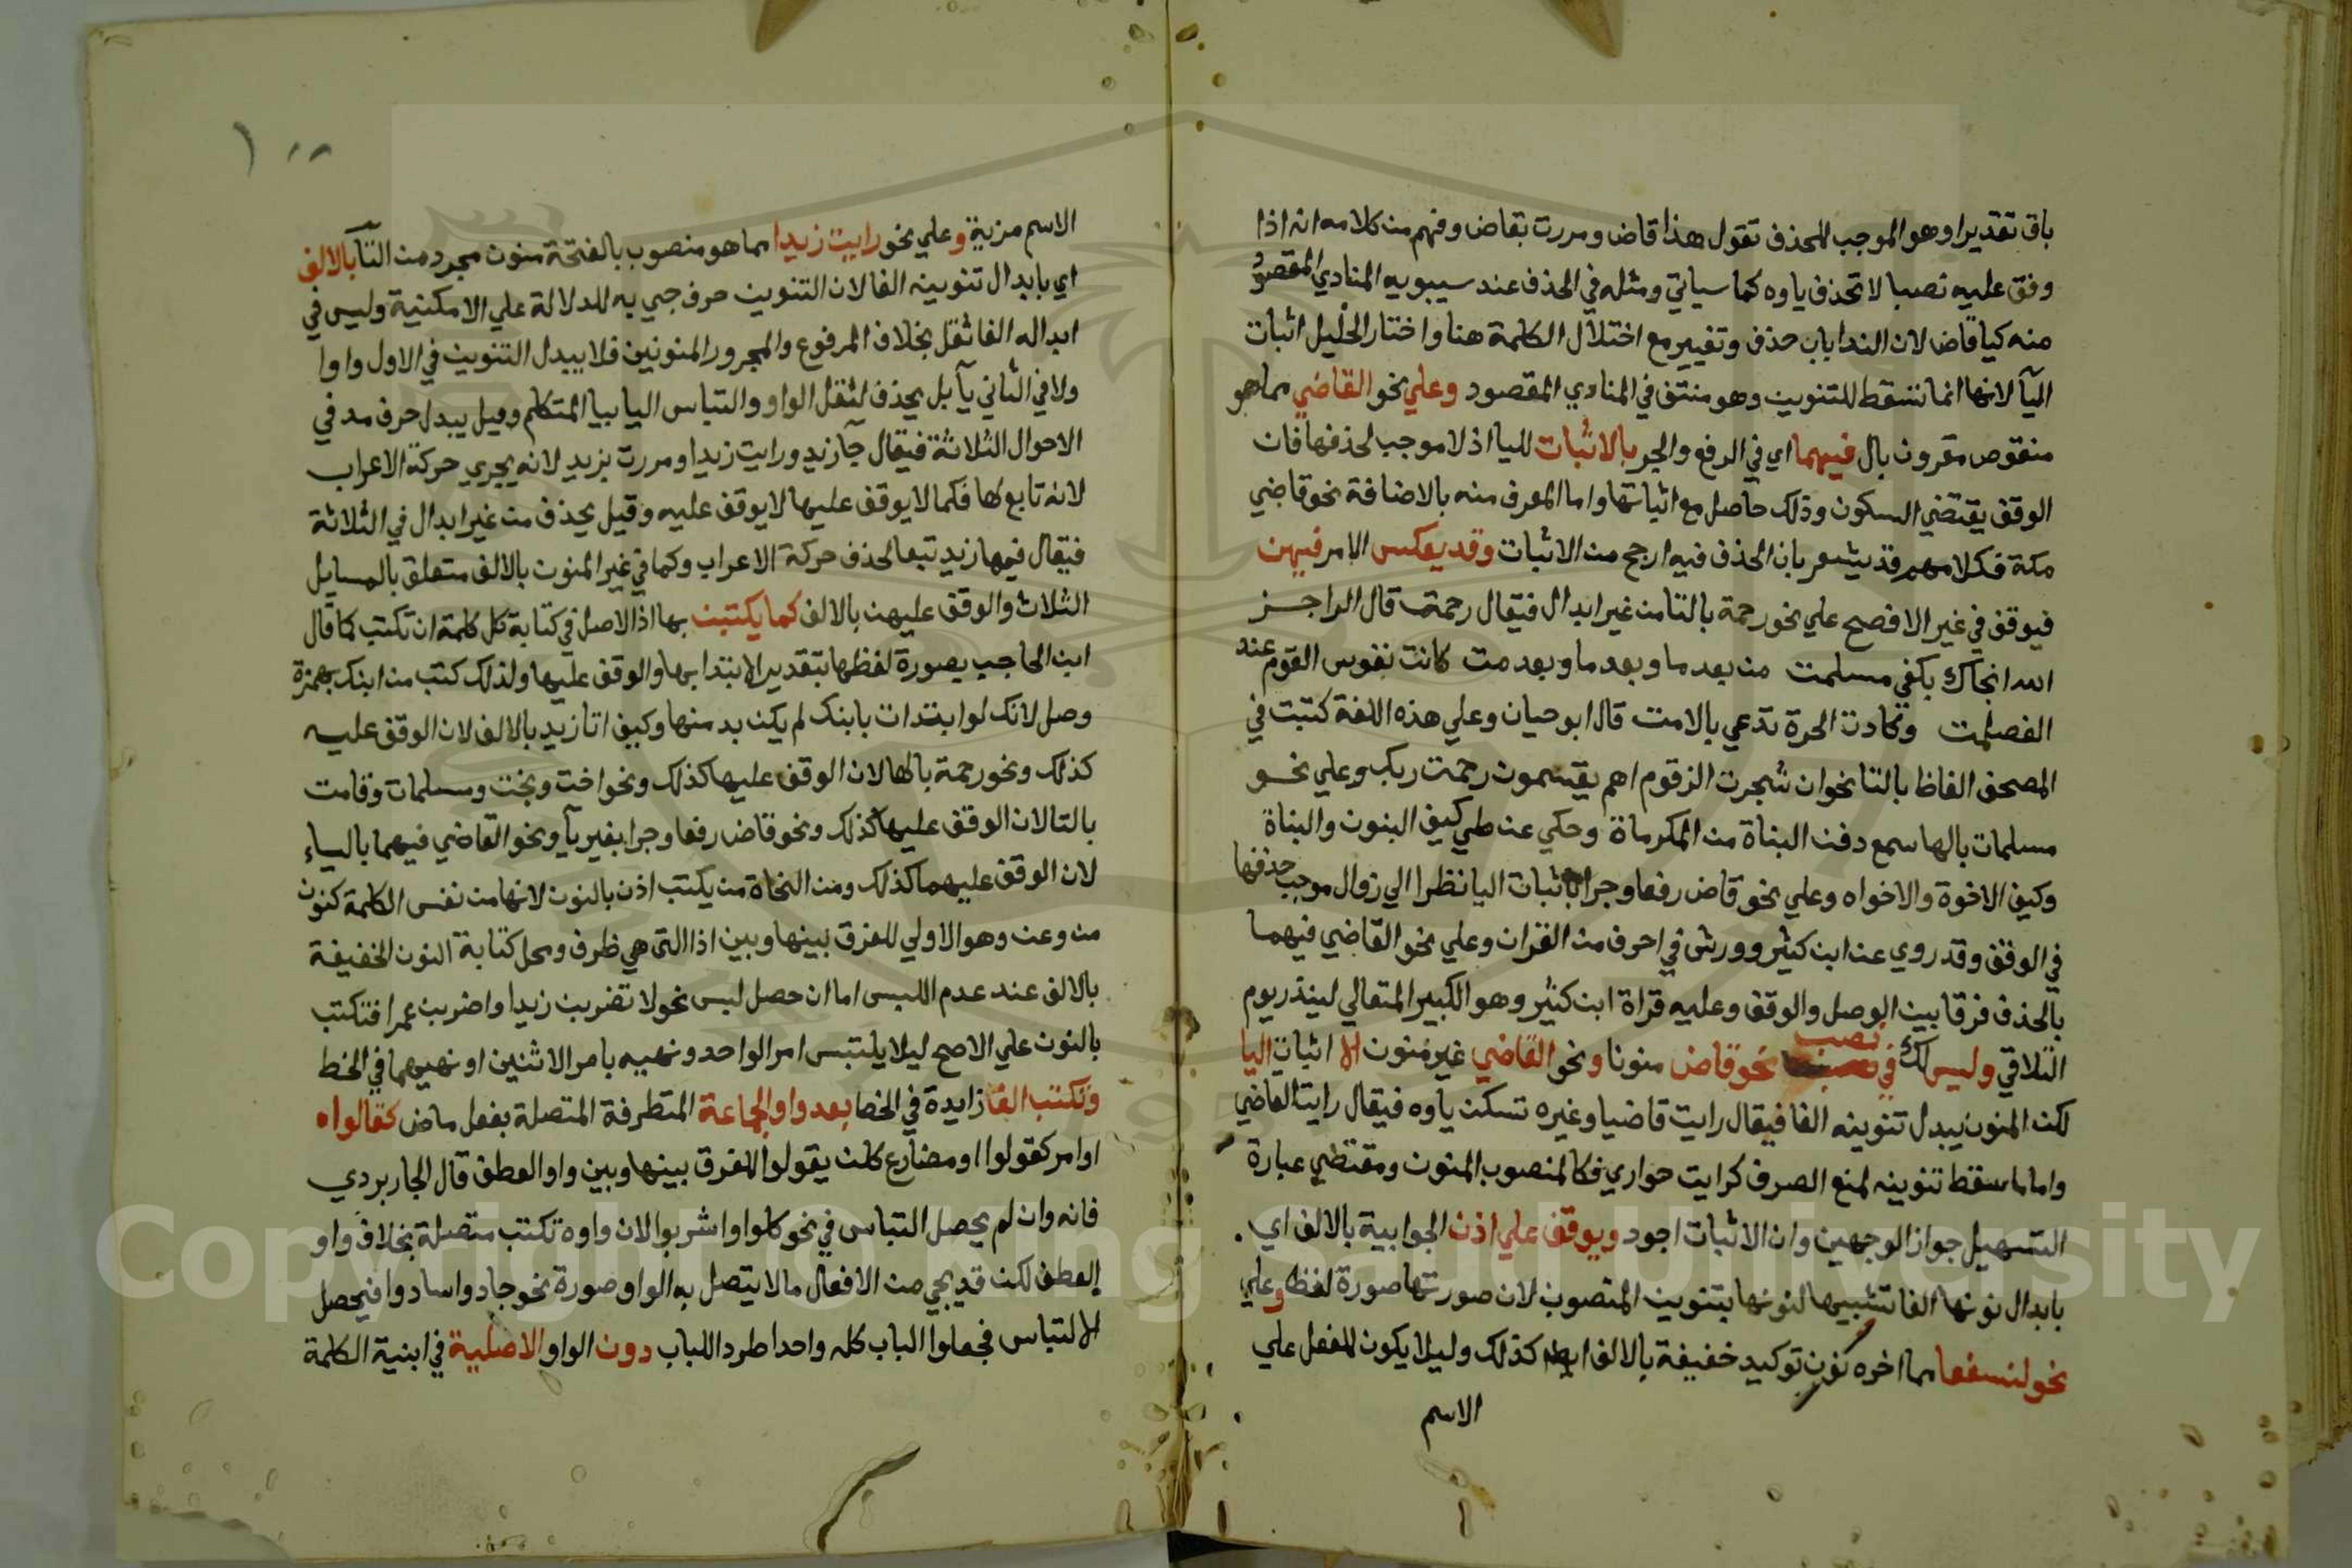 باق تقديرا وهو الموجب للحذف تقول هذا قاض ومررت بقاض وفهم من كلامه انه اذا
وقف عليه نصبا لا تحذف ياوه كما سياتي ومثله في الحذف عند سيبويه المنادي المقصود
منه كيا قاض لان الندا باب حذف وتغيير مع اختلال الكلمة هنا واختار الخليل اثبات
اليآ لانها انما تسقط للتنوين وهو منتف في المنادي المقصود وعلي نحو القاضي مما هو
منقوص مقرون بال فيهما اي في الرفع والجر بالاثبات لليا اذ لا موجب لحذفها فان
الوقف يقتضي السكون وذلك حاصل مع اثباتها واما المعرف منه بالاضافة نحو قاضي
مكة فكلامهم قد يشعر بان الحذف فيه ارجح من الاثبات وقد يعكس الامر فيهن
فيوقف في غير الافصح علي نحو رحمة بالتا من غير ابدال فيقال رحمت قال الراجز
الله انجاك بكفي مسلمت من بعد ما وبعد ما وبعد مت كانت نفوس القوم عند
الغصلمت وكادت الحرة تدعي بالامت قال ابو حيان وعلي هذه اللغة كتبت في
المصحف الفاظ بالتا نحو ان شجرت الزقوم اهم يقسمون رحمت ربك وعلي نحو
مسلمات بالها سمع دفن البناة من المكرماة وحكي عن طي كيف البنون والبناة
وكيف الاخوة والاخواه وعلي نحو قاض رفعا وجرا باثبات اليا نظرا الي زوال موجب حذفها
في الوقف وقد روي عن ابن كثير وورش في احرف من القران وعلي نحو القاضي فيهما
بالحذف فرقا بين الوصل والوقف وعليه قراة ابن كثير وهو الكبير المتعالي لينذر يوم
التلاقي وليس لك في نصب نحو قاض منونا ونحو القاضي غير منون الا اثبات اليا
لكن المنون يبدل تنوينه الفا فيقال رايت قاضيا وغيره تسكن ياوه فيقال رايت القاضي
واما ما سقط تنوينه لمنع الصرف كرايت جواري فكالمنصوب المنون ومقتضي عبارة
التسهيل جواز الوجهين وان الاثبات اجود ويوقف علي اذن الجوابية بالالف اي
بابدال نونها الفا تشبيها لنونها بتنوين المنصوب لان صورتها صورة لفظه وعلي
نحو لنسفعا مما اخره نون توكيد خفيفة بالالف ايضا كذلك وليلا يكون للفعل علي
الاسم
الاسم مزية وعلي نحو رايت زيدا مما هو منصوب بالفتحة منون مجرد من التآ بالالف
اي بابدال تنوينه الفا لان التنوين حرف جي به للدلالة علي الامكنية وليس في
ابداله الفا ثقل بخلاف المرفوع والمجرور المنونين فلا يبدل التنوين في الاول واوا
ولا في الثاني يآ بل يحذف لثقل الواو والتباس اليا بيا المتكلم وقيل يبدل حرف مد في
الاحوال الثلاثة فيقال جآ زيدو رايت زيدا ومررت بزيدي لانه يجري حركة الاعراب
لانه تابع لها فكما لا يوقف عليها لا يوقف عليه وقيل يحذف من غير ابدال في الثلاثة
فيقال فيها زيد تبعا لحذف حركة الاعراب وكما في غير المنون بالالف متعلق بالمسايل
الثلاث والوقف عليهن بالالف كما يكتبن بها اذ الاصل في كتابة كل كلمة ان تكتب كما قال
ابن الحاجب بصورة لفظها بتقدير الابتدا بها والوقف عليها ولذلك كتب من ابنك بهمزة
وصل لانك لو ابتدات بابنك لم يكن بد منها وكيف انا زيد بالالف لان الوقف عليه
كذلك ونحو رحمة بالها لان الوقف عليها كذلك ونحو اخت وبخت ومسلمات وقامت
بالتا لان الوقف عليها كذلك ونحو قاض رفعا وجرا بغير يآ ونحو القاضي فيهما بالياء
لان الوقف عليهما كذلك ومن النحاة من يكتب اذن بالنون لانها من نفس الكلمة كنون
من وعن وهو الاولي للفرق بينها وبين اذا التي هي ظرف ومحل كتابة النون الخفيفة
بالالف عند عدم اللبس اما ان حصل لبس نحو لا تضربن زيدا واضربن عمرا فتكتب
بالنون علي الاصح ليلا يلتبس امر الواحد ونهيه بامر الاثنين او نهيهما في الخط
وتكتب الفا زايدة في الخط بعد واو الجماعة المتطرفة المتصلة بفعل ماض كقالوا
او امر كقولوا او مضارع كلن يقولوا للفرق بينها وبين واو العطف قال الجاربردي
فانه وان لم يحصل التباس في نحو كلوا واشربوا لان واوه تكتب متصلة بخلاف واو
العطف لكن قد يجي من الافعال ما لا يتصل به الواو صورة نحو جادوا سادوا فيحصل
الالتباس فجعلوا الباب كله واحدا طردا للباب دون الواو الاصلية في ابنية الكلمة
Copyright © King Saud University